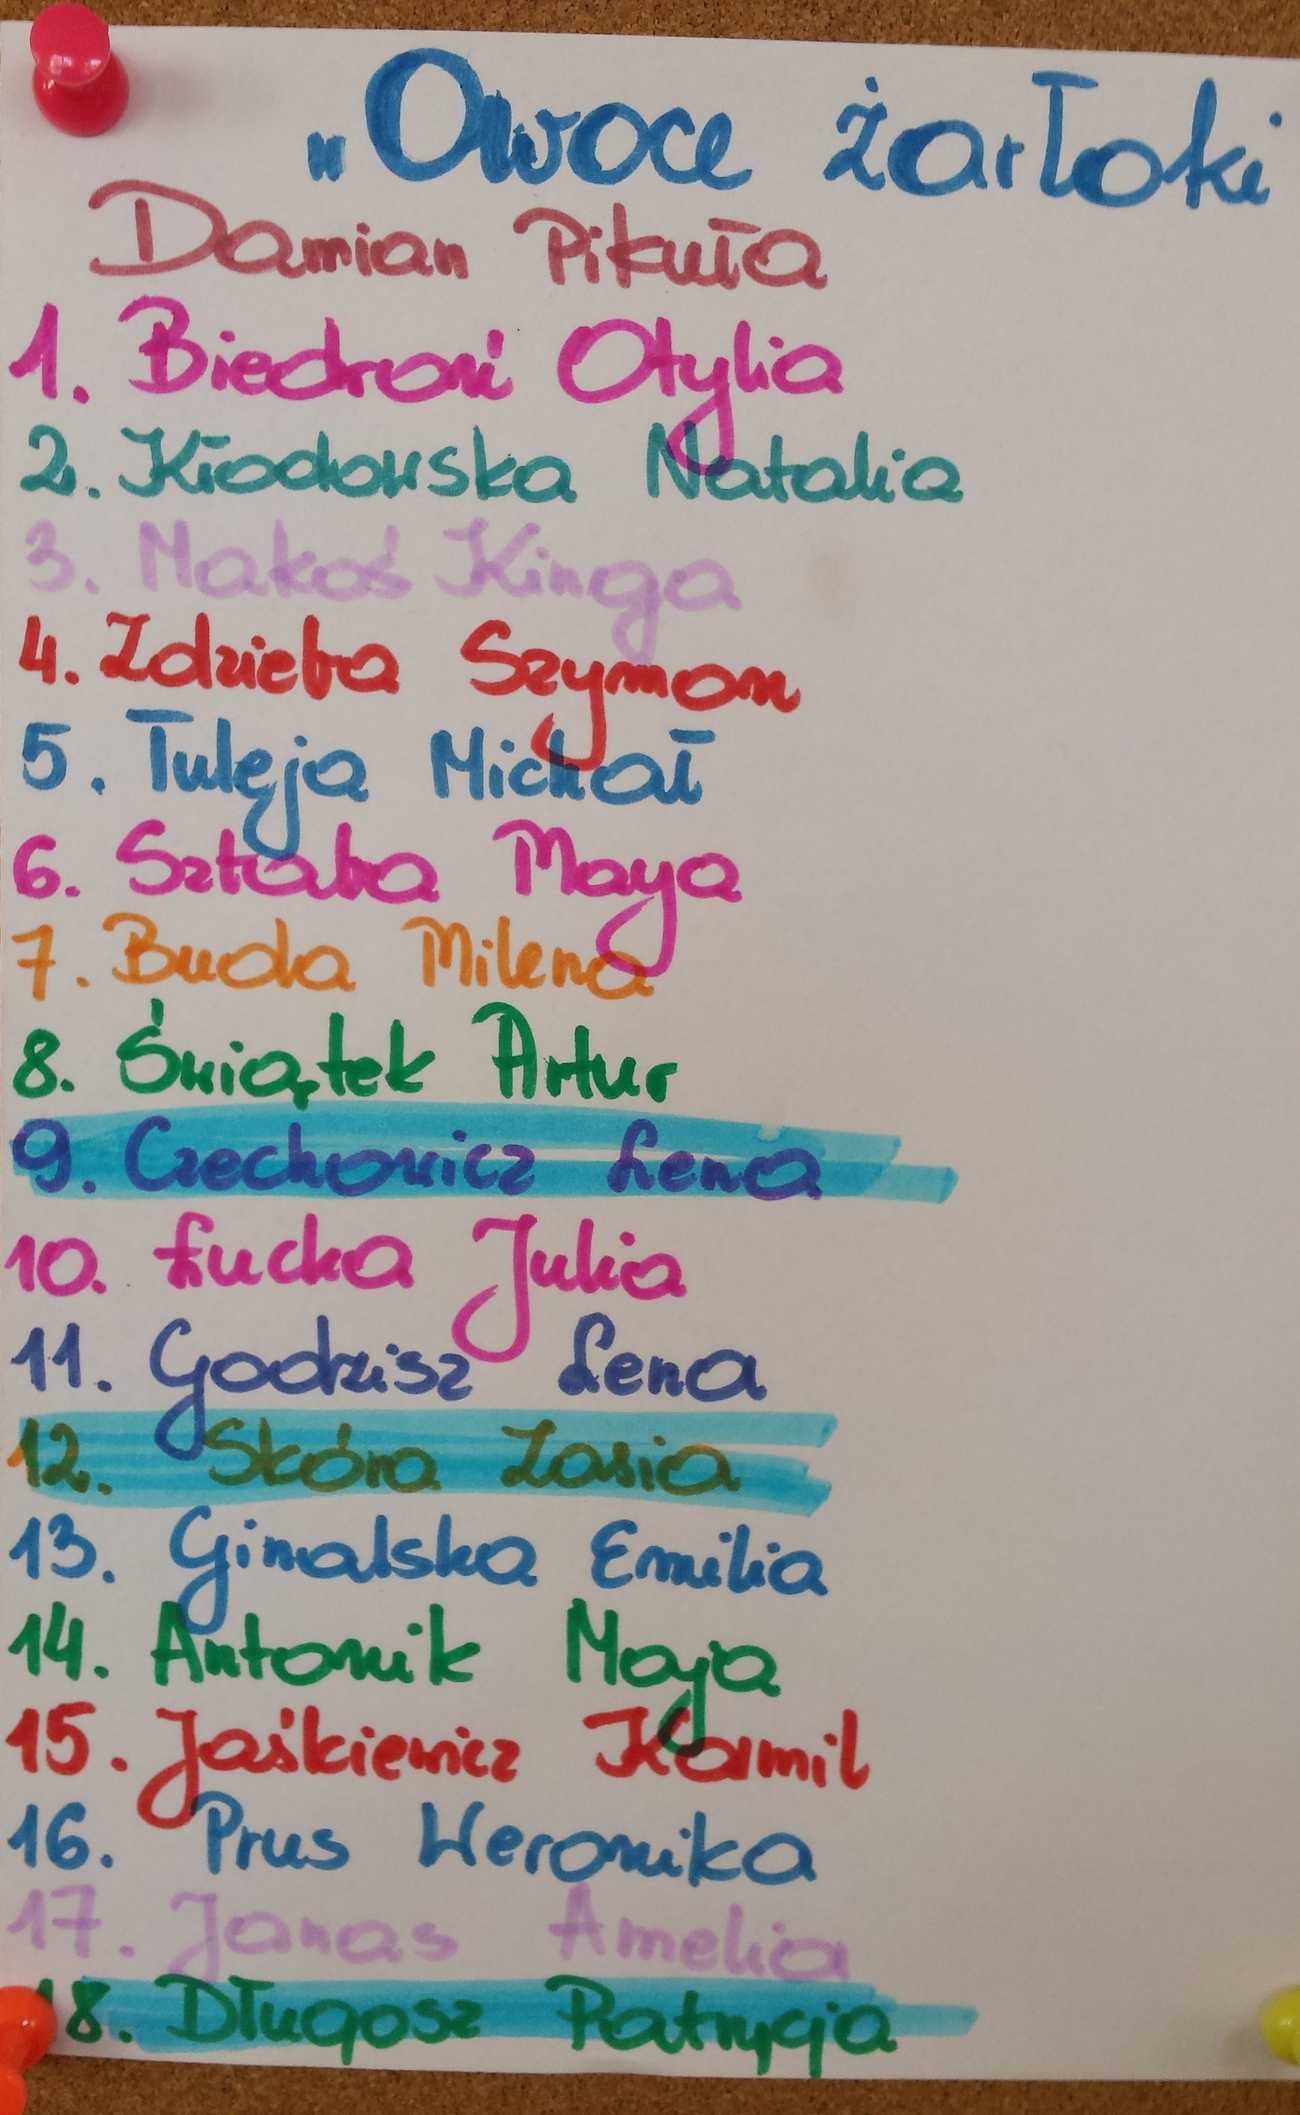 „Owoce żarłoki
Damian Pikuła
1. Biedroń Otylia
2. Kłodowska Natalia
3. Makoś Kinga
4. Zdzieba Szymon
5. Tuleja Michał
6. Sztaba Maya
7. Buda Milena
8. Świątek Artur
9. Czechowicz Lena
10. Łucka Julia
11. Godzisz Lena
12. Skóra Zosia
13. Gimalska Emilia
14. Antonik Maja
15. Jaśkiewicz Kamil
16. Prus Weronika
17. Janas Amelia
18. Długosz Patrycja